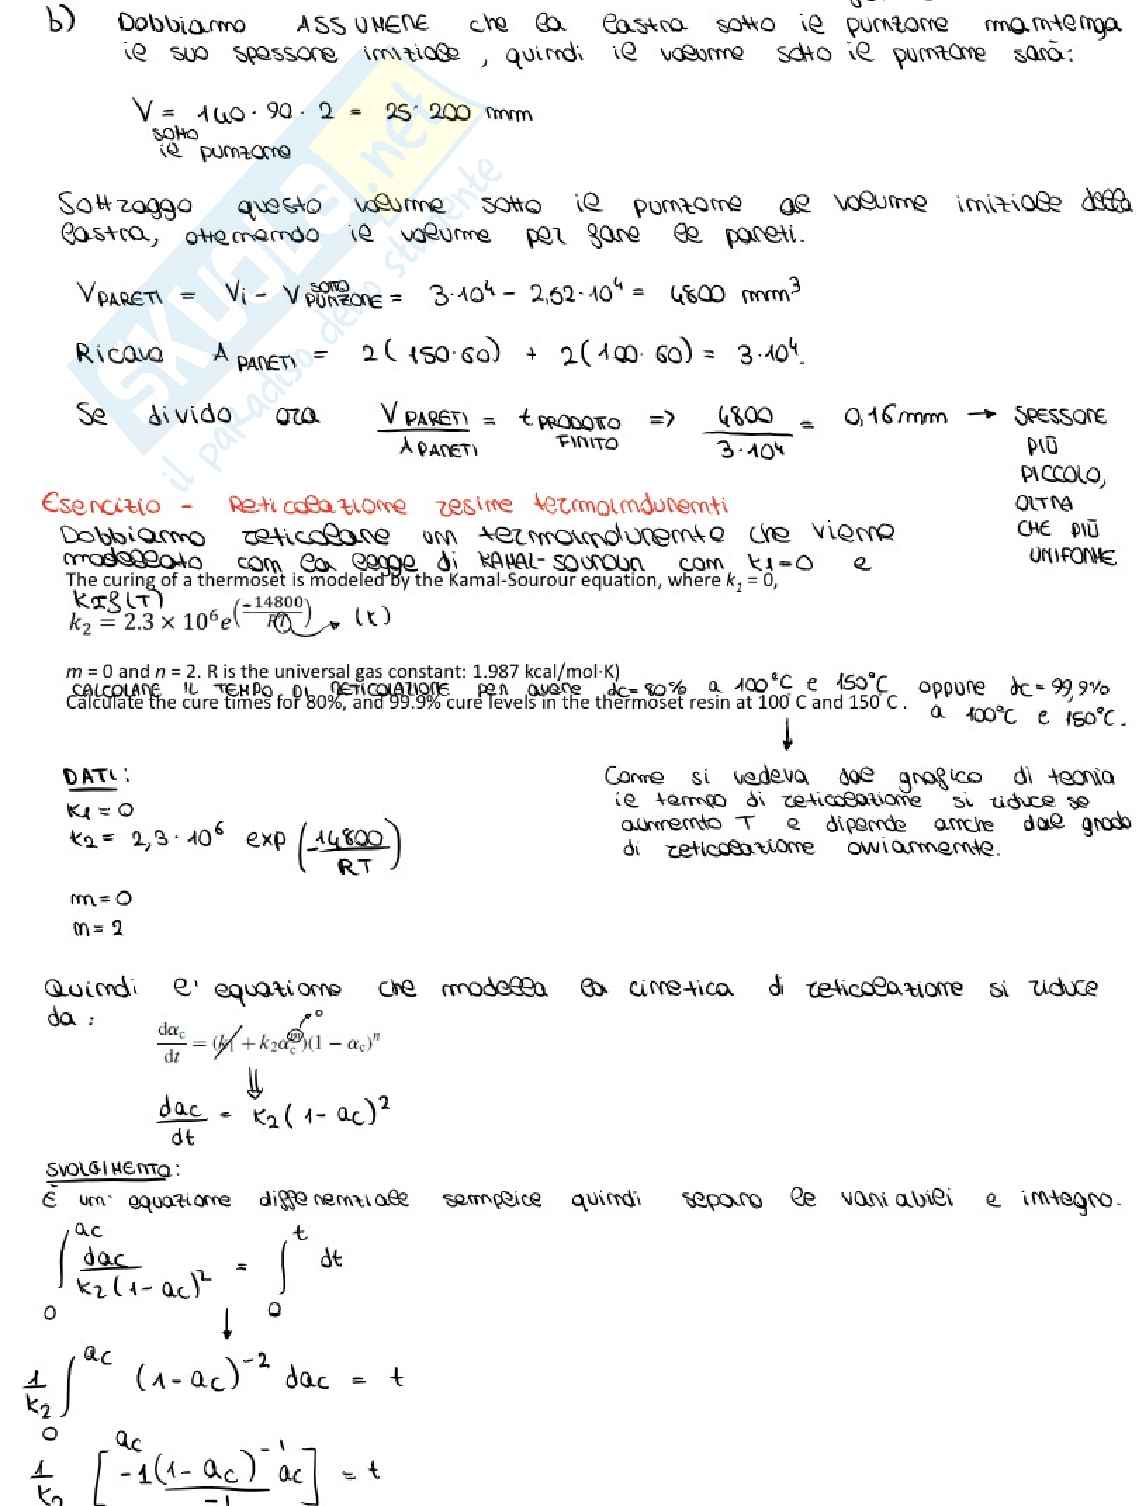 b) Dobbiamo ASSUMERE che la lastra sotto il punzone mantenga
il suo spessore iniziale, quindi il volume sotto il punzone sarà:
V sotto il punzone = 140 · 90 · 2 = 25·200 mm
Sottraggo questo volume sotto il punzone al volume iniziale della
lastra, ottenendo il volume per fare le pareti.
V PARETI = Vi - V SOTTO PUNZONE = 3·10⁴ - 2,52·10⁴ = 4800 mm³
Ricavo A PARETI = 2(150·60) + 2(100·60) = 3·10⁴.
Se divido ora V PARETI / A PARETI = t PRODOTTO FINITO => 4800 / 3·10⁴ = 0,16mm → SPESSORE
PIÙ
PICCOLO,
OLTRE
CHE PIÙ
UNIFORME
Esercizio - Reticolazione resine termoindurenti
Dobbiamo reticolare un termoindurente che viene
modellato con la legge di KAMAL-SOUROUR con K1=0 e
The curing of a thermoset is modeled by the Kamal-Sourour equation, where k₁ = 0,
K2 f(T)
k₂ = 2.3 × 10⁶e^(−14800/RT) → (t)
m = 0 and n = 2. R is the universal gas constant: 1.987 kcal/mol·K)
CALCOLARE IL TEMPO DI RETICOLAZIONE per avere αc=80% a 100°C e 150°C oppure αc=99,9%
a 100°C e 150°C.
Calculate the cure times for 80%, and 99.9% cure levels in the thermoset resin at 100°C and 150°C.
DATI:
K1=0
K2 = 2,3·10⁶ exp(-14800/RT)
m=0
n=2
Come si vedeva dal grafico di teoria
il tempo di reticolazione si riduce se
aumento T e dipende anche dal grado
di reticolazione ovviamente.
Quindi l'equazione che modella la cinetica di reticolazione si riduce
da:
dαc/dt = (k₁ + k₂αc^m)(1 − αc)ⁿ
0
⇓
dac/dt = K2(1-ac)²
SVOLGIMENTO:
È un'equazione differenziale semplice quindi separo le variabili e integro.
∫₀^ac dac / K2(1-ac)² = ∫₀^t dt
↓
1/K2 ∫₀^ac (1-ac)⁻² dac = t
1/K2 [-1(1-ac)⁻¹ ac / -1]^ac = t
SKUOLA.net
il paradiso dello studente